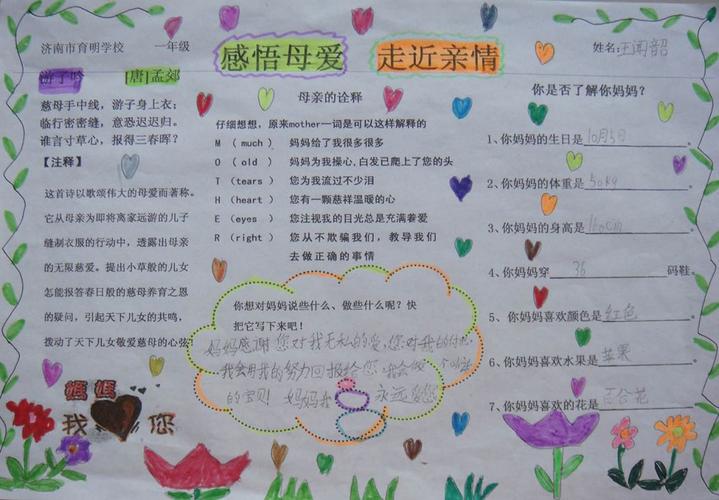 济南市育明学校 一年级
感悟母爱 走近亲情
姓名:
游子吟 [唐]孟郊
慈母手中线,游子身上衣;
临行密密缝,意恐迟迟归。
谁言寸草心,报得三春晖?
【注释】
这首诗以歌颂伟大的母爱而著称。
它从母亲为即将离家远游的儿子
缝制衣服的行动中,透露出母亲
的无限慈爱。提出小草般的儿女
怎能报答春日般的慈母养育之恩
的疑问,引起天下儿女的共鸣,
拨动了天下儿女敬爱慈母的心弦!
妈妈
我 您
母亲的诠释
仔细想想,原来mother一词是可以这样解释的
M (much) 妈妈给了我很多很多
O (old) 妈妈为我操心,白发已爬上了您的头
T (tears) 您为我流过不少泪
H (heart) 您有一颗慈祥温暖的心
E (eyes) 您注视我的目光总是充满着爱
R (right) 您从不欺骗我们,教导我们
去做正确的事情
你想对妈妈说些什么、做些什么呢?快
把它写下来吧!
妈妈感谢您对我无私的爱,您对我的付出
我会用我的努力回报给您 我会做一个
的宝贝! 妈妈我 永远爱您
你是否了解你妈妈?
1、你妈妈的生日是10月5日。
2、你妈妈的体重是50kg。
3、你妈妈的身高是160cm。
4、你妈妈穿36码鞋。
5、你妈妈喜欢颜色是红色。
6、你妈妈喜欢水果是苹果。
7、你妈妈喜欢的花是百合花